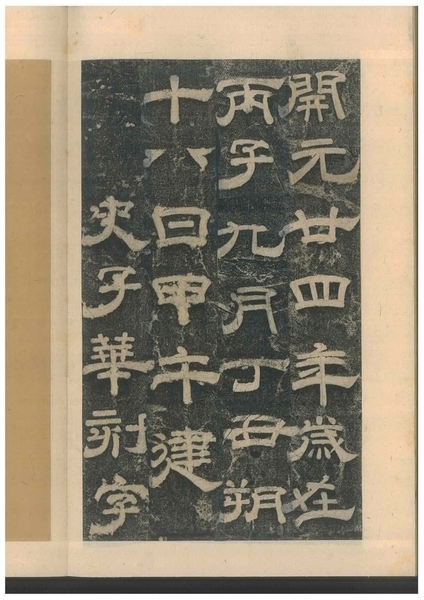 開元廿四年歲在
丙子九月丁丑朔
十八日甲午建
史子華刻字